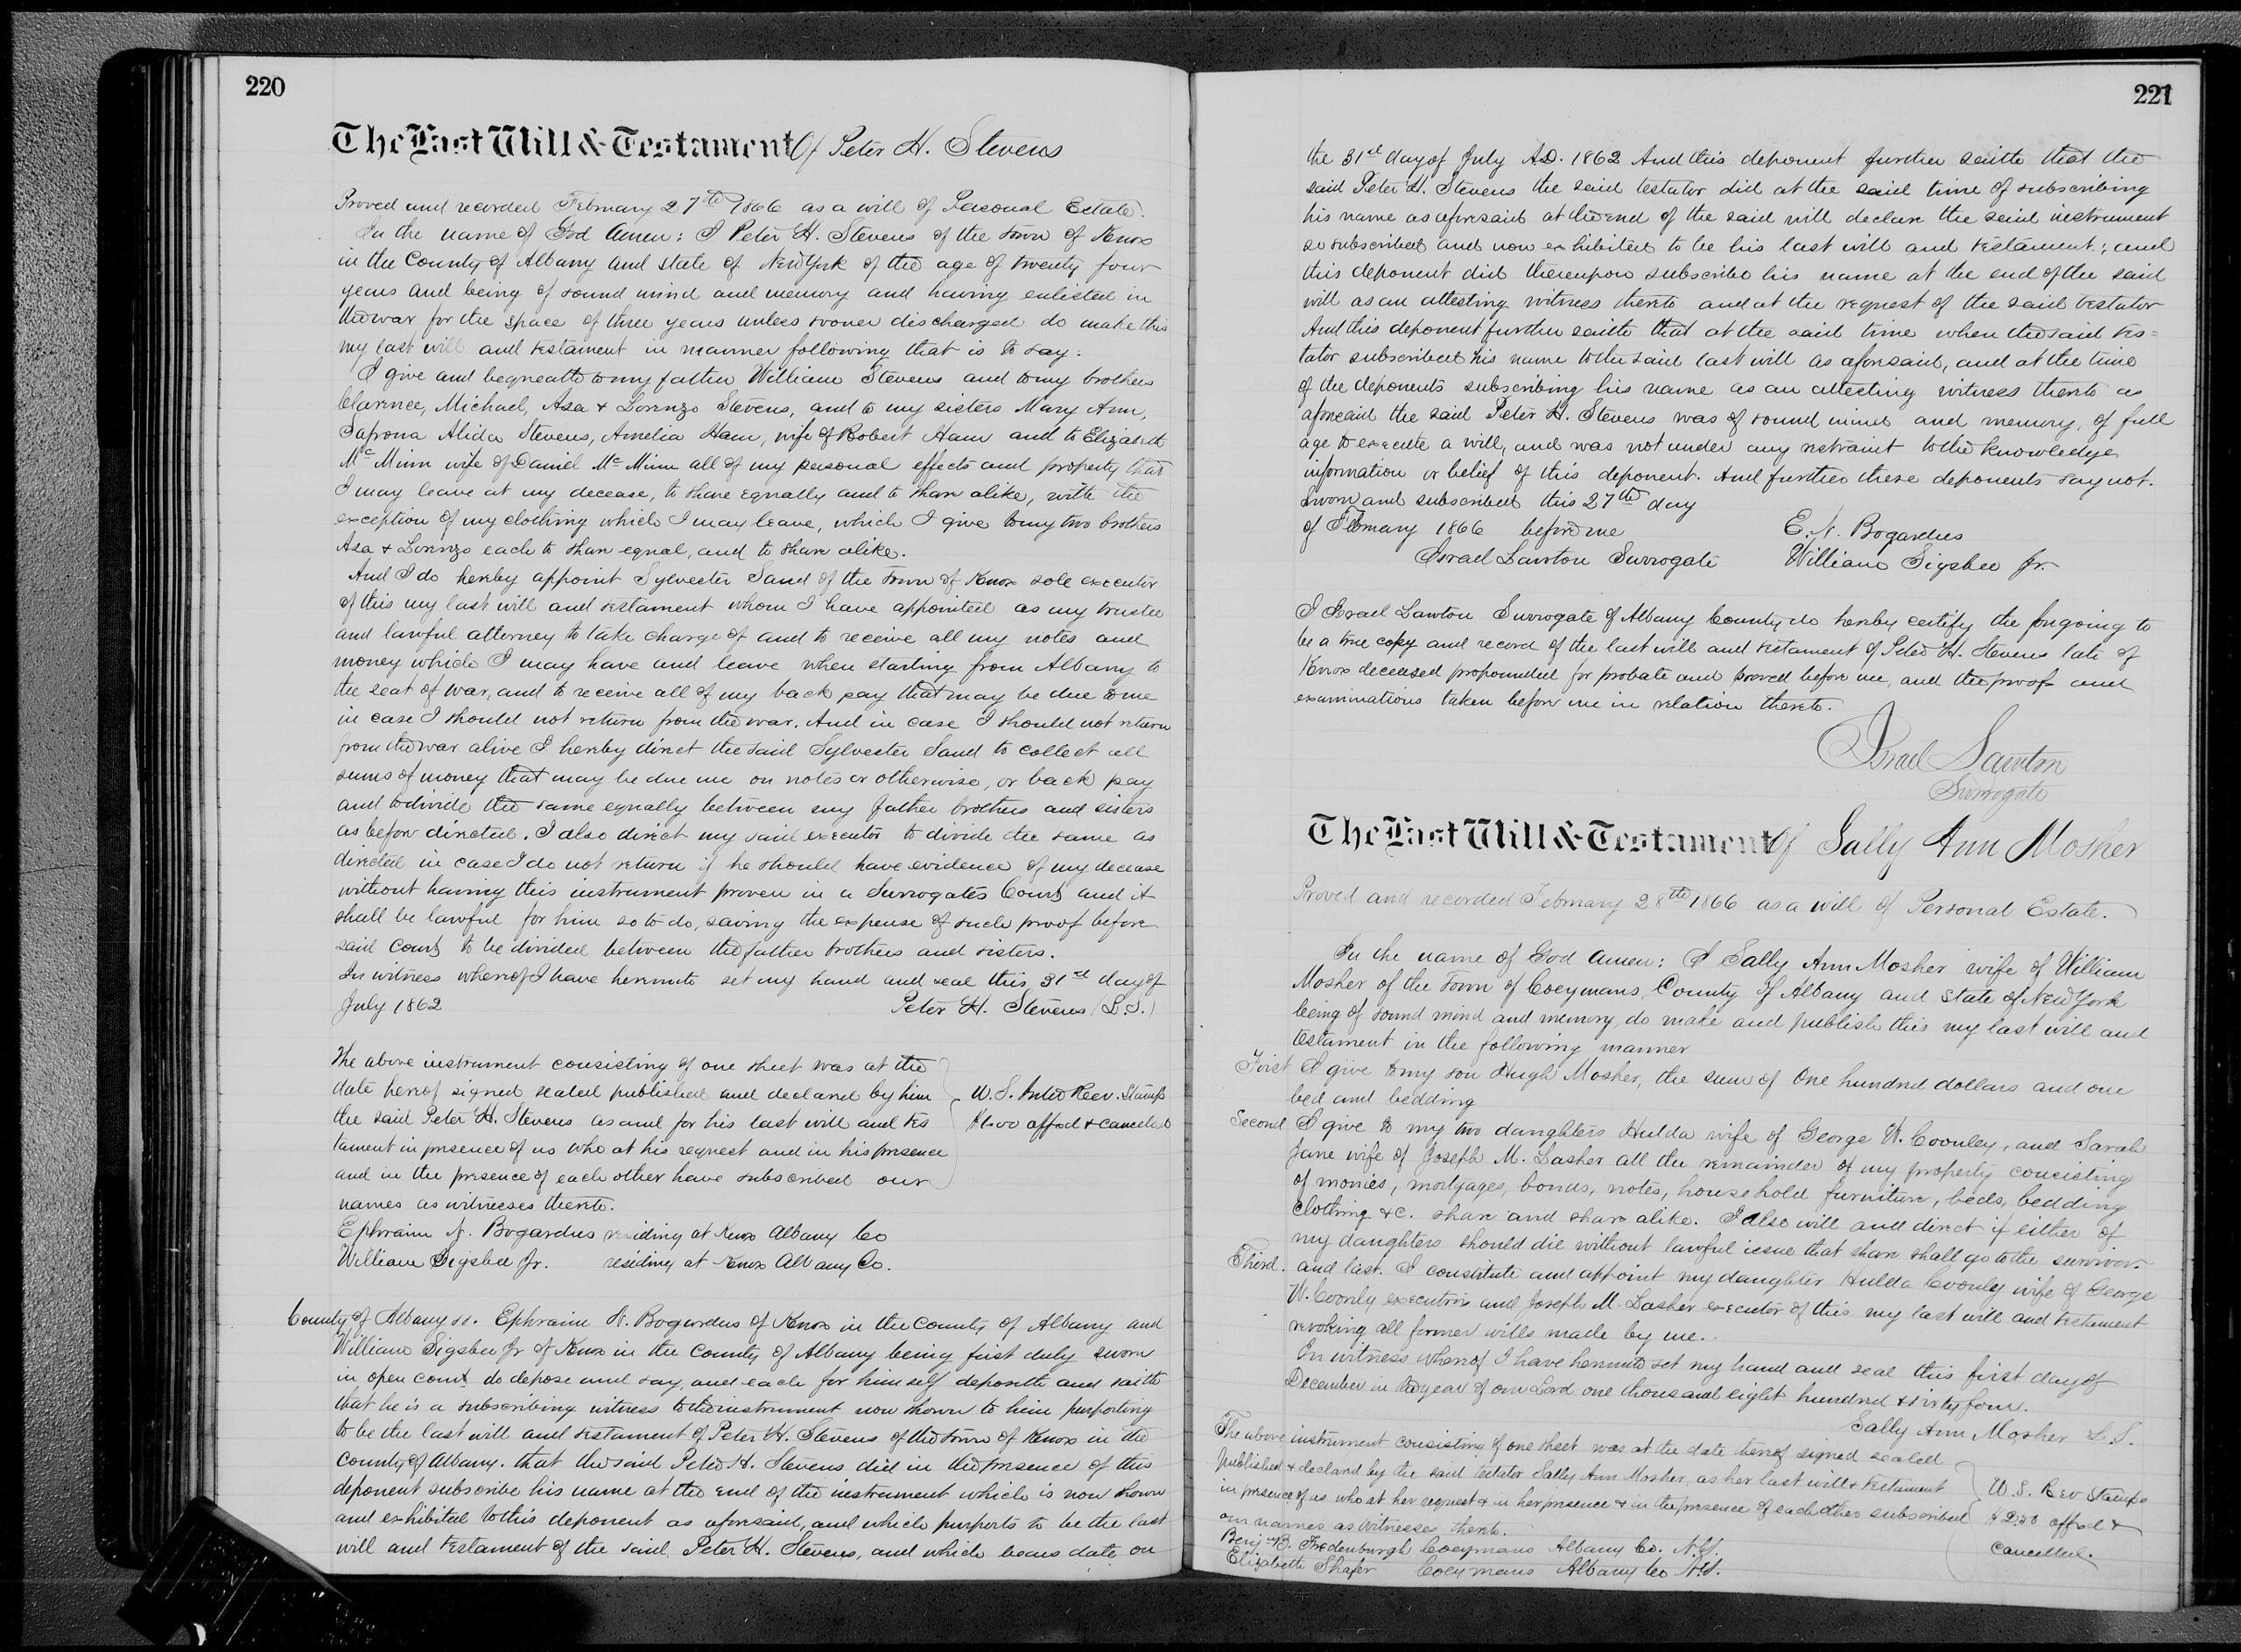 220
The Last Will & Testament Of Peter H. Stevens
Proved and recorded February 27th 1866 as a will of Personal Estate.
In the name of God Amen: I Peter H. Stevens of the Town of Knox
in the County of Albany and State of New York of the age of twenty four
years and being of sound mind and memory and having enlisted in
the war for the space of three years unless sooner discharged do make this
my last will and testament in manner following that is to say:
I give and bequeath to my father William Stevens and to my brothers
Clarence, Michael, Asa & Lorenzo Stevens, and to my sisters Mary Ann,
Safrona Alida Stevens, Amelia Ham, wife of Robert Ham and to Elizabeth
Mc Minn wife of Daniel Mc Minn all of my personal effects and property that
I may leave at my decease, to share equally and to share alike, with the
exception of my clothing which I may leave, which I give to my two brothers
Asa & Lorenzo each to share equal, and to share alike.
And I do hereby appoint Sylvester Sand of the Town of Knox sole executor
of this my last will and testament whom I have appointed as my trustee
and lawful attorney to take charge of and to receive all my notes and
money which I may have and leave when starting from Albany to
the seat of war, and to receive all of my back pay that may be due to me
in case I should not return from the war. And in case I should not return
from the war alive I hereby direct the said Sylvester Sand to collect all
sums of money that may be due me on notes or otherwise, or back pay
and to divide the same equally between my father brothers and sisters
as before directed. I also direct my said executor to divide the same as
directed in case I do not return if he should have evidence of my decease
without having this instrument proven in a Surrogates Court and it
shall be lawful for him so to do, saving the expense of such proof before
said Court to be divided between the father brothers and sisters.
In witness whereof I have hereunto set my hand and seal this 31st day of
July 1862 Peter H. Stevens (L.S.)
The above instrument consisting of one sheet was at the
date hereof signed sealed published and declared by him
the said Peter H. Stevens as and for his last will and tes
tament in presence of us who at his request and in his presence
and in the presence of each other have subscribed our
names as witnesses thereto.
U.S. Inter Rev. Stamps
$1.00 affxd & cancelled
Ephraim N. Bogardus residing at Knox Albany Co
William Sigsbee Jr. residing at Knox Albany Co.
County of Albany ss. Ephraim N. Bogardus of Knox in the County of Albany and
William Sigsbee Jr of Knox in the County of Albany being first duly sworn
in open court do depose and say, and each for himself deposeth and saith
that he is a subscribing witness to the instrument now shown to him purporting
to be the last will and testament of Peter H. Stevens of the Town of Knox in the
County of Albany. that the said Peter H. Stevens did in the presence of this
deponent subscribe his name at the end of the instrument which is now shown
and exhibited to this deponent as aforesaid, and which purports to be the last
will and testament of the said Peter H. Stevens, and which bears date on
221
the 31st day of July A.D. 1862 And this deponent further saith that the
said Peter H. Stevens the said testator did at the said time of subscribing
his name as aforesaid at the end of the said will declare the said instrument
so subscribed and now exhibited to be his last will and testament; and
this deponent did thereupon subscribe his name at the end of the said
will as an attesting witness thereto and at the request of the said testator
And this deponent further saith that at the said time when the said tes=
tator subscribed his name to the said last will as aforesaid, and at the time
of the deponents subscribing his name as an attesting witness thereto as
aforesaid the said Peter H. Stevens was of sound mind and memory, of full
age to execute a will, and was not under any restraint to the knowledge
information or belief of this deponent. And further these deponents say not.
Sworn and subscribed this 27th day
of February 1866 before me E. N. Bogardus
Israel Lawton Surrogate William Sigsbee Jr.
I Israel Lawton Surrogate of Albany County do hereby certify the forgoing to
be a true copy and record of the last will and testament of Peter H. Stevens late of
Knox deceased propounded for probate and proved before me, and the proofs and
examinations taken before me in relation thereto.
Israel Lawton
Surrogate
The Last Will & Testament Of Sally Ann Mosher
Proved and recorded February 28th 1866 as a will of Personal Estate.
In the name of God Amen: I Sally Ann Mosher wife of William
Mosher of the Town of Coeymans, County of Albany and State of New York
being of sound mind and memory, do make and publish this my last will and
testament in the following manner
First I give to my son Hugh Mosher, the sum of One hundred dollars and one
bed and bedding
Second I give to my two daughters Hulda wife of George W. Coonley, and Sarah
Jane wife of Joseph M. Lasher all the remainder of my property consisting
of monies, mortgages, bonds, notes, household furniture, beds, bedding
clothing &c. share and share alike. I also will and direct if either of
my daughters should die without lawful issue that share shall go to the survivor.
Third. and last. I constitute and appoint my daughter Hulda Coonly wife of George
W. Coonly executrix and Joseph M. Lasher executor of this my last will and testament
revoking all former wills made by me.
In witness whereof I have hereunto set my hand and seal this first day of
December in the year of our Lord one thousand eight hundred & sixty four.
Sally Ann Mosher L.S.
The above instrument consisting of one sheet was at the date hereof signed sealed
published & declared by the said testator Sally Ann Mosher, as her last will & testament
in presence of us who at her request & in her presence & in the presence of each other subscribed
our names as witnesses thereto.
U.S. Rev Stamps
$2.50 affxd &
cancelled.
Benjn B. Fredenburgh Coeymans Albany Co. N.Y.
Elizabeth Shafer Coeymans Albany Co N.Y.